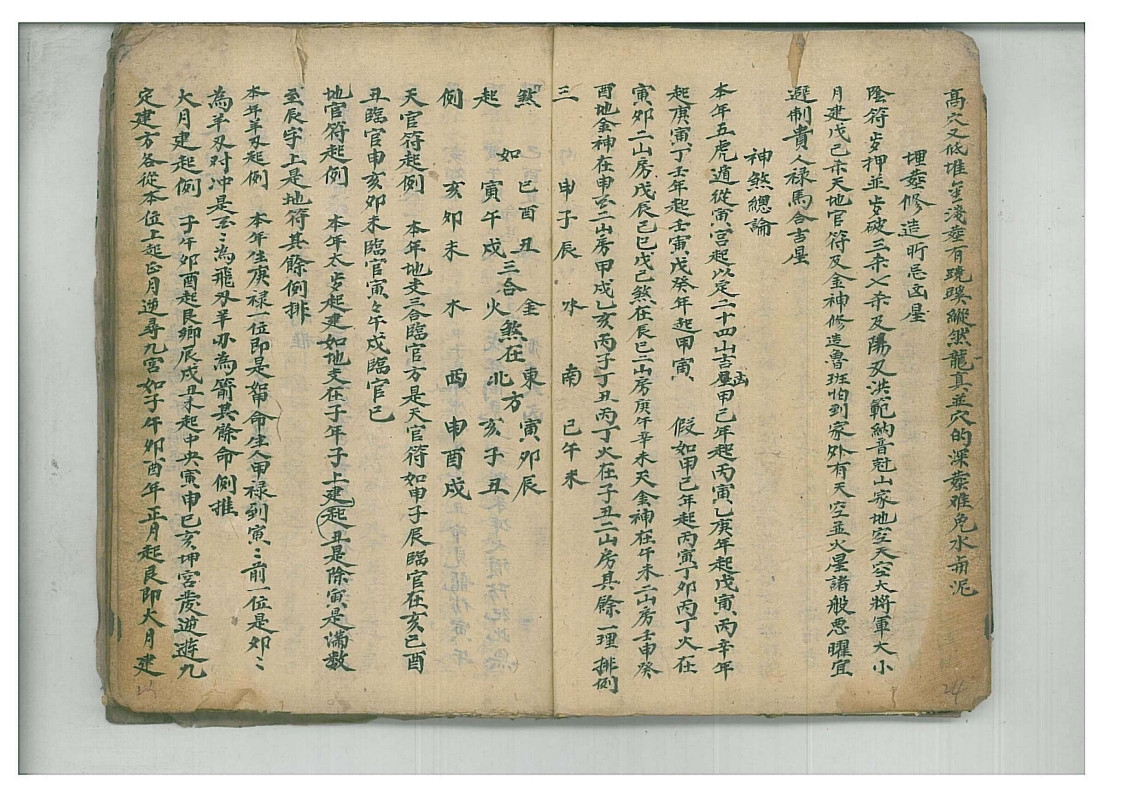 高穴又低堆金淺葬有蹺蹊縱然龍真並穴的深葬难免水而泥
埋葬修造所忌凶星
陰符岁押並岁破三杀七杀及陽刃洪範納音尅山家地空天空大將軍大小
月建戊己杀天地官符及金神修造魯班怕到家外有天空並火星諸般悪曜宜
避制貴人禄馬合吉星
神煞總論
本年五虎遁從寅宮起以定二十四山吉凶屋甲己年起丙寅乙庚年起戊寅丙辛年
起庚寅丁壬年起壬寅戊癸年起甲寅 假如甲己年起丙寅丁卯丙丁火在
寅卯二山房戊辰己巳戊己煞在辰巳二山房庚午辛未天金神在午未二山房壬申癸
酉地金神在申酉二山房甲戌乙亥丙子丁丑丙丁火在子丑二山房其餘一理排例
三 申子辰 水 南 巳午未
煞 巳酉丑 金 東 寅卯辰
如 三合 煞在 方
起 寅午戌 火 北 亥子丑
例 亥卯未 木 西 申酉戌
天官符起例 本年地支三合臨官方是天官符如申子辰臨官在亥巳酉
丑臨官申亥卯未臨官寅寅午戌臨官巳
地官符起例 本年太岁起建如地支在子年子上建起丑是除寅是滿数
至辰字上是地符其餘例排
本年羊刃起例 本年生庚禄一位即是如甲命生人甲禄到寅〻前一位是卯〻
為羊刃对冲是酉〻為飛刃羊刃為箭其餘命例推
大月建起例 子午卯酉起艮鄉辰戌丑未起中央寅申巳亥坤宮發逆遊九
定建方各從本位上起正月逆尋九宮如子午卯酉年正月起艮即大月建
24